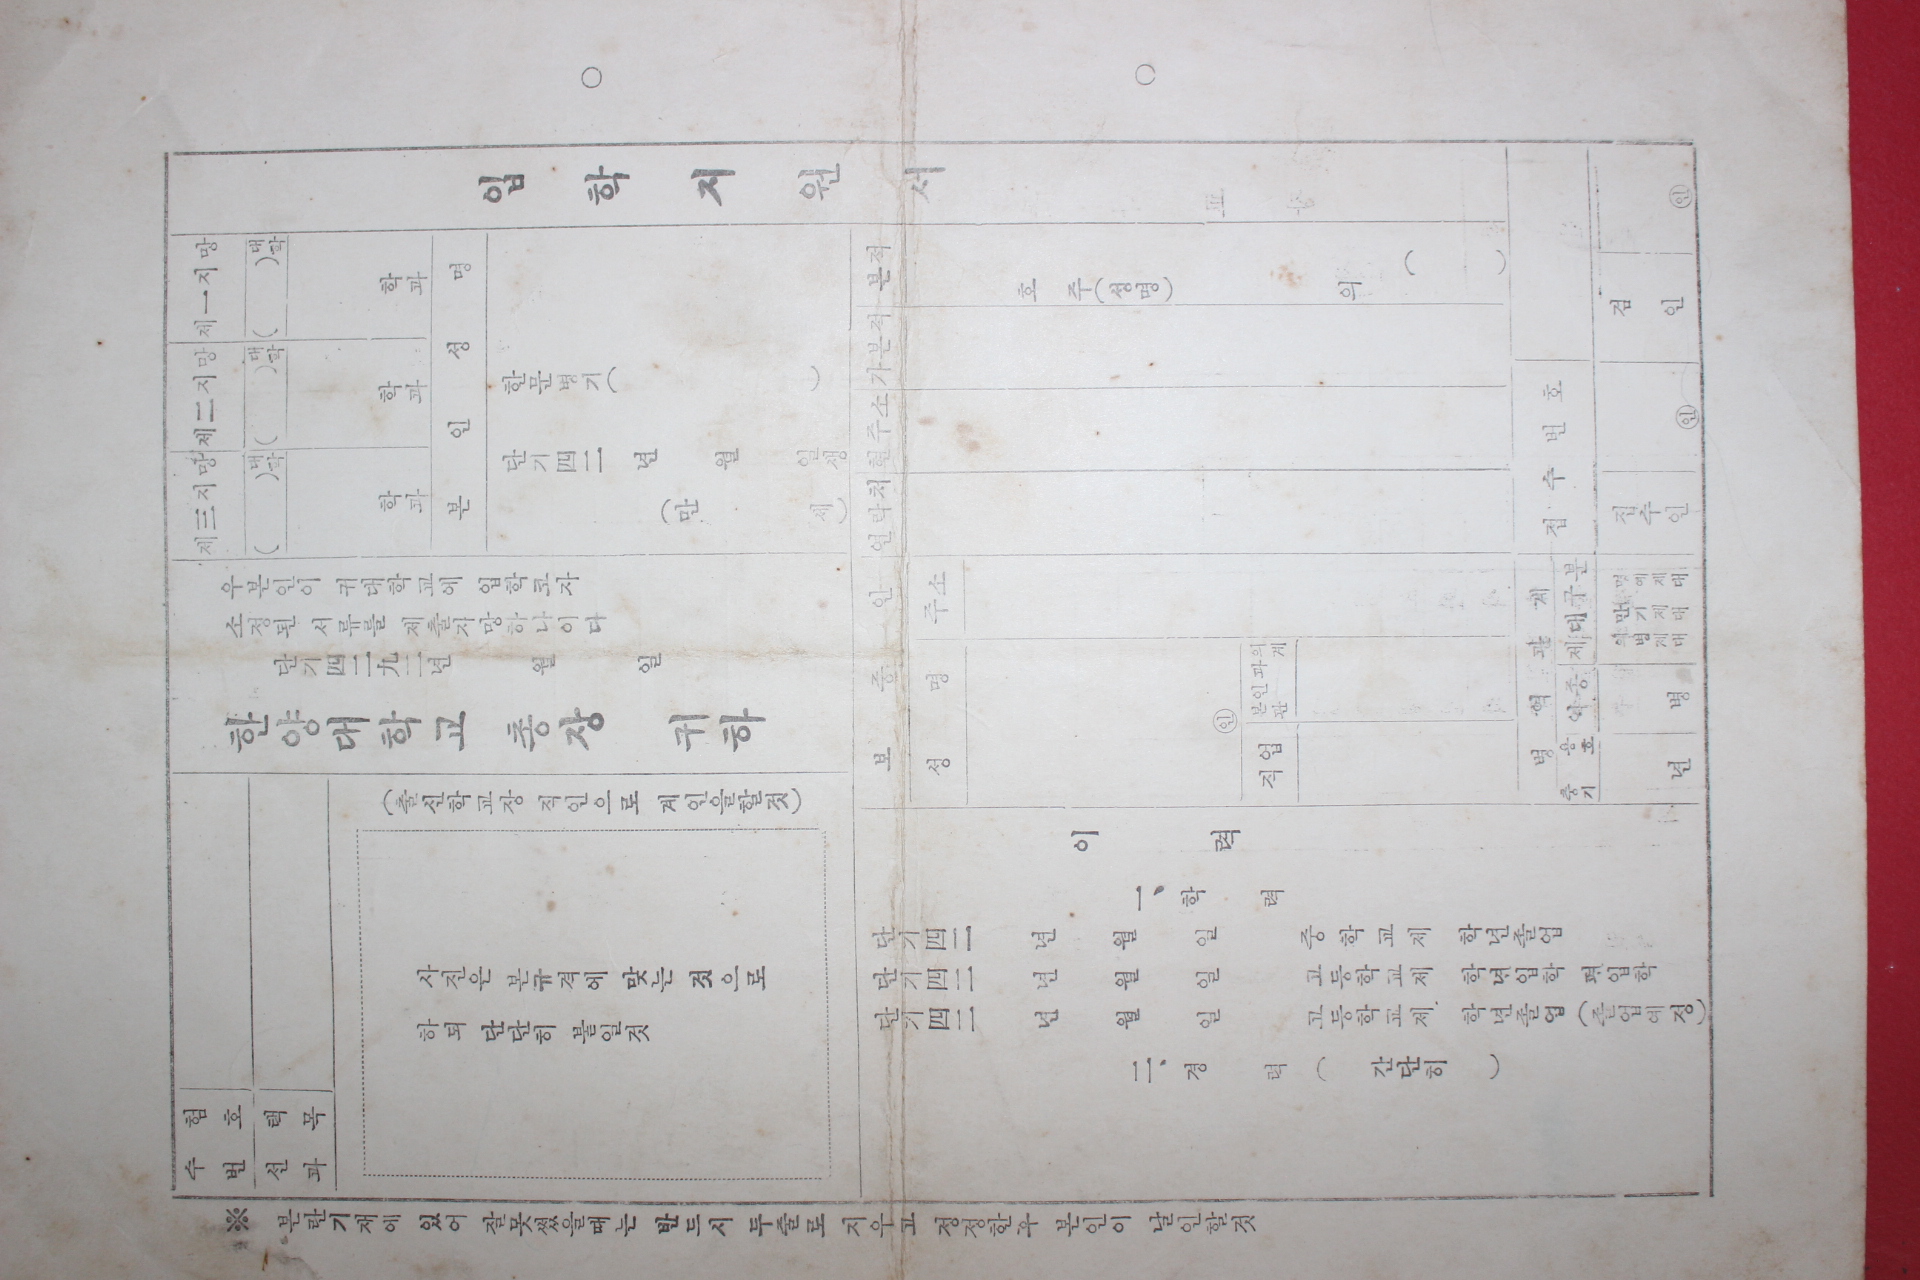 입학지원서
제一지망
( )대학
학과
제二지망
( )대학
학과
제三지망
( )대학
학과
본인성명
한문병기( )
단기四二 년 월 일생
(만 세)
우본인이 귀대학교에 입학코자
소정된 서류를 제출지망하나이다
단기四二九二년 월 일
한양대학교 총장 귀하
(출신학교장 직인으로 계인을할것)
사진은 본규격에 맞는 것으로
하되 단단히 붙일것
수험번호
선택과목
본적
호주(성명) 의( )
가본적
현주소
연락처
보증인
주소
성명
인
본인과의관계
직업
접수번호
병역관계
제대구분
역종
군번
병역미필
만기제대
의병제대
검인
인
접수인
인
년 병
이력
一、학력
단기四二 년 월 일 중학교제 학년졸업
단기四二 년 월 일 고등학교제 학년입학 편입학
단기四二 년 월 일 고등학교제 학년졸업(졸업예정)
二、경력( 간단히 )
※ 본란기재에 있어 잘못썼을때는 반드시 두줄로 지우고 정정한후 본인이 날인할것